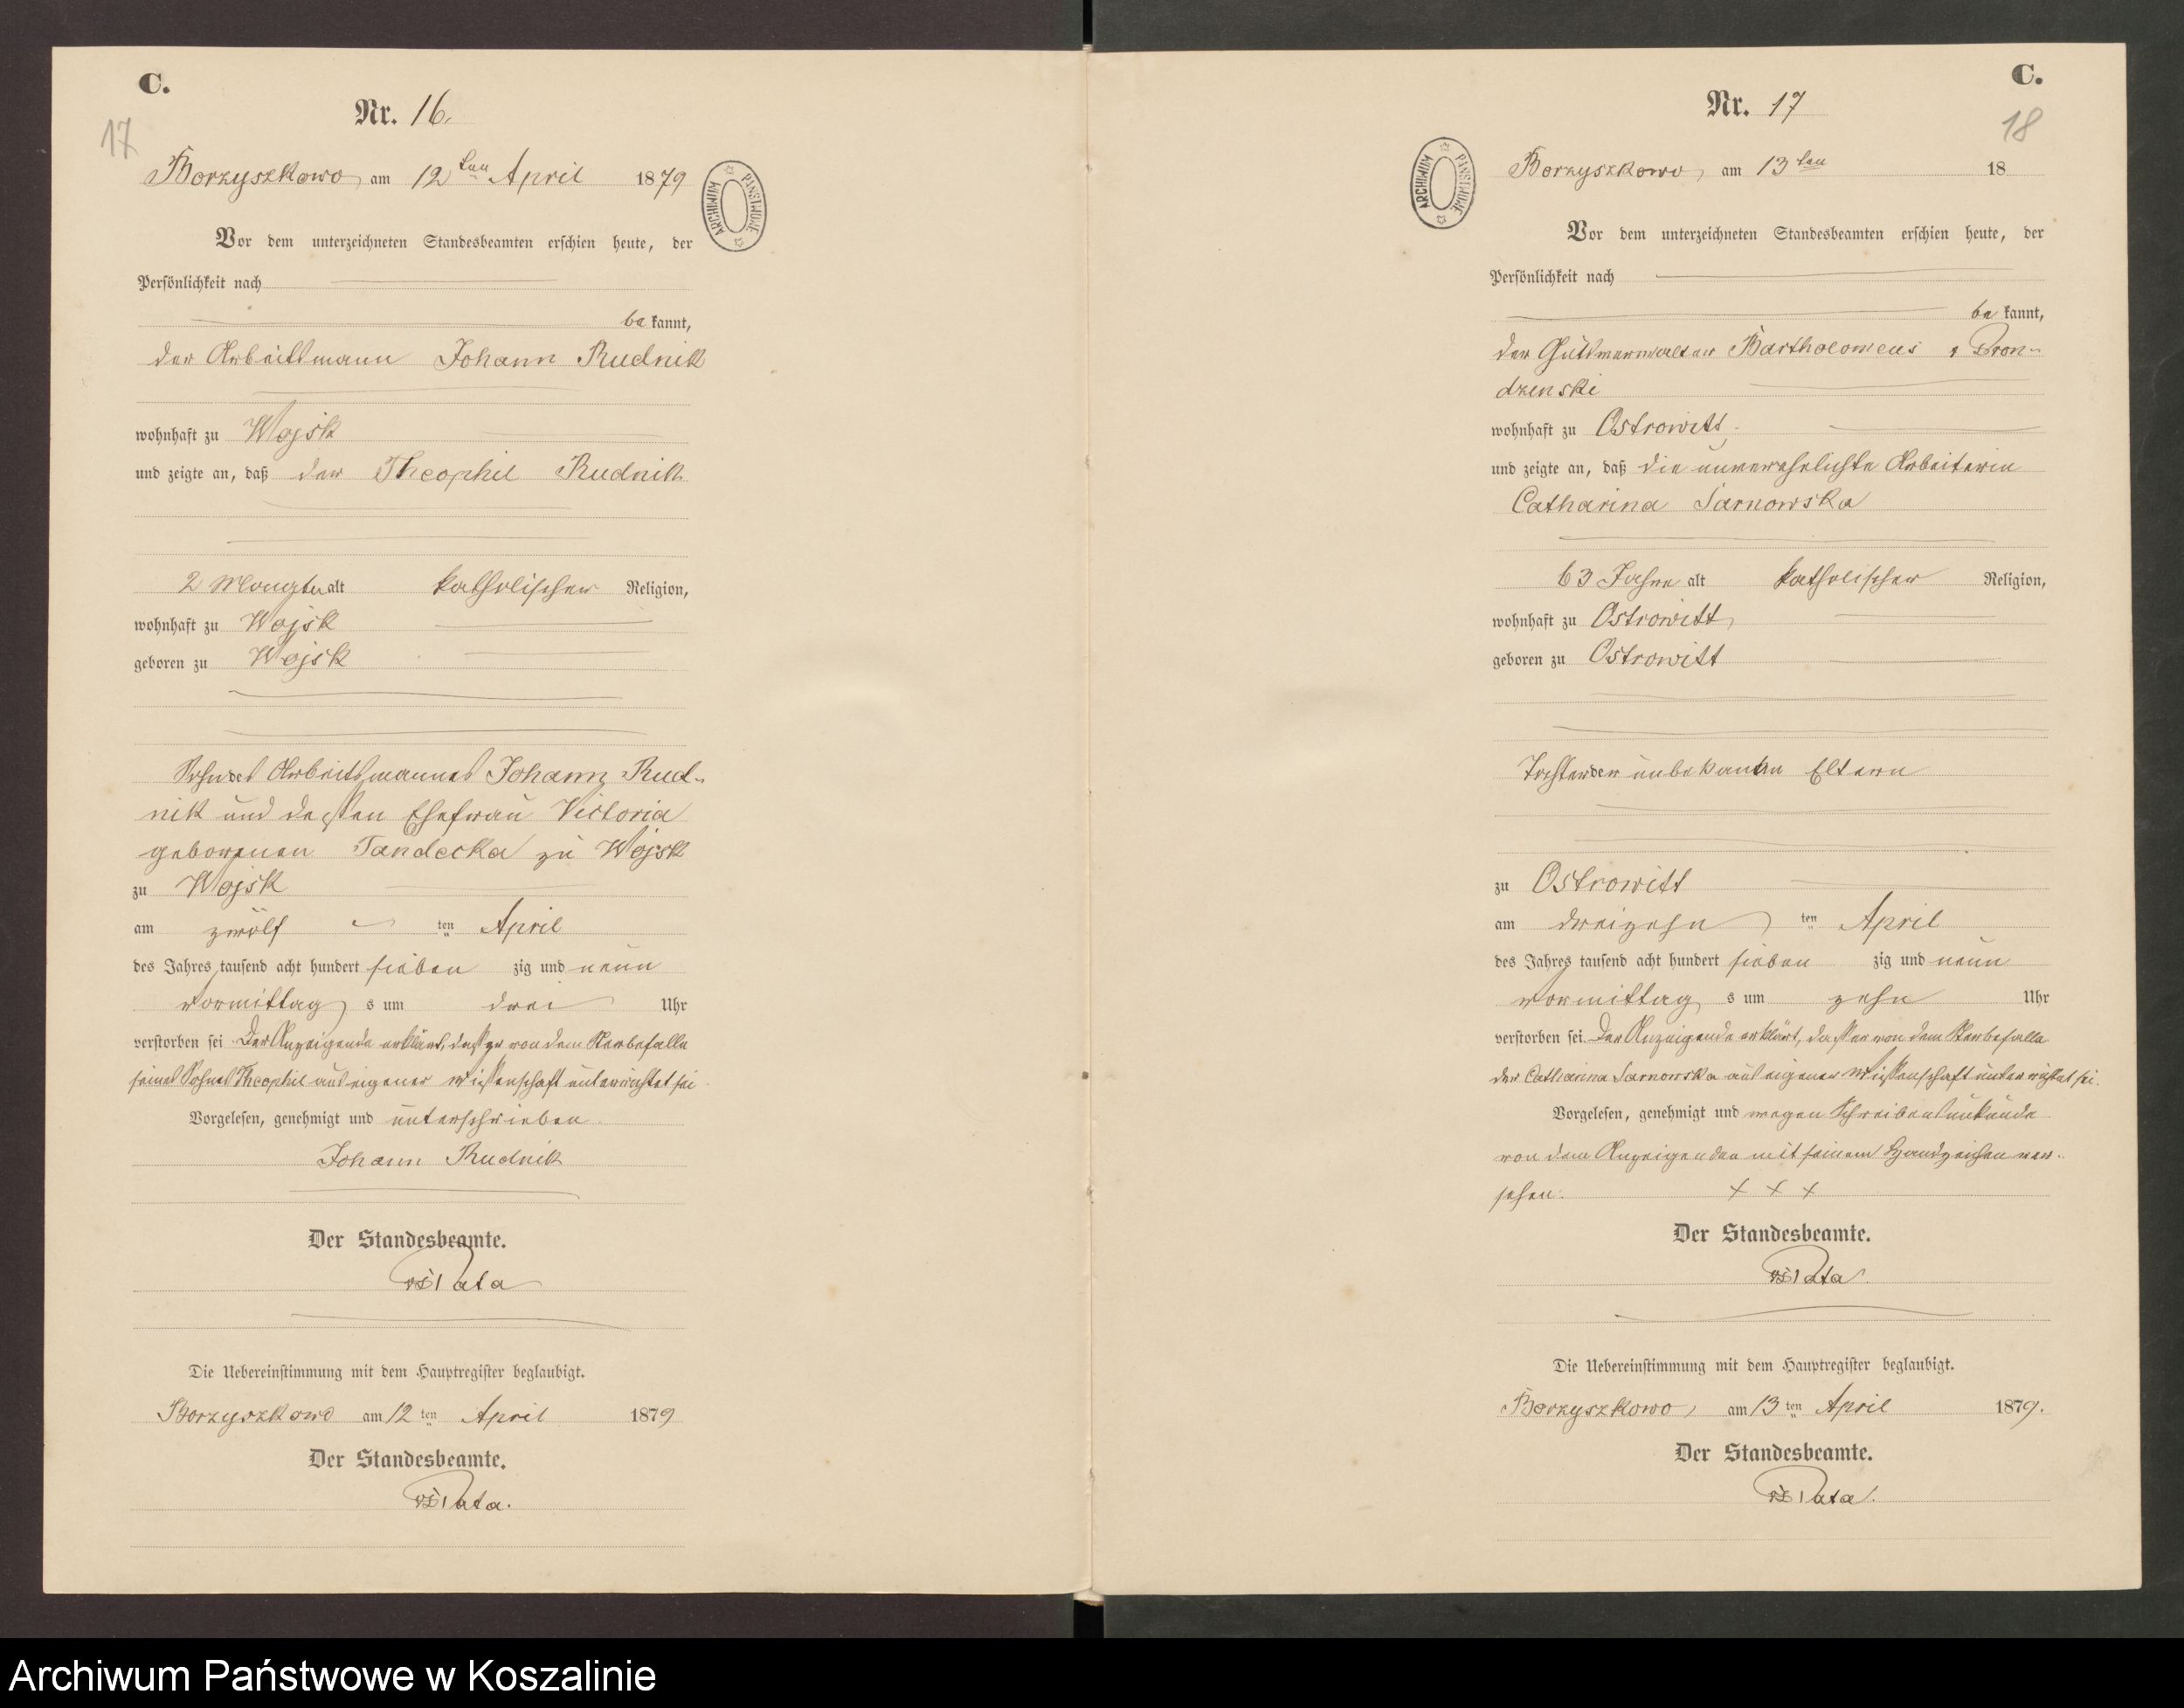 C.
17
Nr. 16.
Borzyszkowo am 12ten April 1879
ARCHIWUM PAŃSTWOWE
Vor dem unterzeichneten Standesbeamten erschien heute, der
Persönlichkeit nach
be kannt,
der Arbeitsmann Johann Rudnik
wohnhaft zu Wojsk
und zeigte an, daß der Theophil Rudnik
2 Monate alt katholischer Religion,
wohnhaft zu Wojsk
geboren zu Wojsk
Sohn des Arbeitsmannes Johann Rud-
nik und dessen Ehefrau Victoria
geborenen Tandecka zu Wojsk
zu Wojsk
am zwölf ten April
des Jahres tausend acht hundert sieben zig und neun
vormittag s um drei Uhr
verstorben sei Der Anzeigende erklärt, dass er von dem Sterbefalle
seines Sohnes Theophil aus eigener Wissenschaft unterrichtet sei
Vorgelesen, genehmigt und unterschrieben
Johann Rudnik
Der Standesbeamte.
Pata
Die Uebereinstimmung mit dem Hauptregister beglaubigt.
Borzyszkowo am 12 ten April 1879
Der Standesbeamte.
Pata.
C.
18
Nr. 17
Borzyszkowo, am 13ten 18
ARCHIWUM PAŃSTWOWE
Vor dem unterzeichneten Standesbeamten erschien heute, der
Persönlichkeit nach
be kannt,
der Gutsverwalter Bartholomeus Pron-
dzenski
wohnhaft zu Ostrowitt
und zeigte an, daß die unverehelichte Arbeiterin
Catharina Sarnowska
63 Jahre alt katholischer Religion,
wohnhaft zu Ostrowitt
geboren zu Ostrowitt
Tochter der unbekannten Eltern
zu Ostrowitt
am dreizehn ten April
des Jahres tausend acht hundert sieben zig und neun
vormittag s um zehn Uhr
verstorben sei. Der Anzeigende erklärt, dass er von dem Sterbefalle
der Catharina Sarnowska aus eigener Wissenschaft unterrichtet sei.
Vorgelesen, genehmigt und wegen Schreibensunkunde
von dem Anzeigenden mit seinem Handzeichen ver-
sehen: + + +
Der Standesbeamte.
Pata
Die Uebereinstimmung mit dem Hauptregister beglaubigt.
Borzyszkowo, am 13 ten April 1879.
Der Standesbeamte.
Pata.
Archiwum Państwowe w Koszalinie